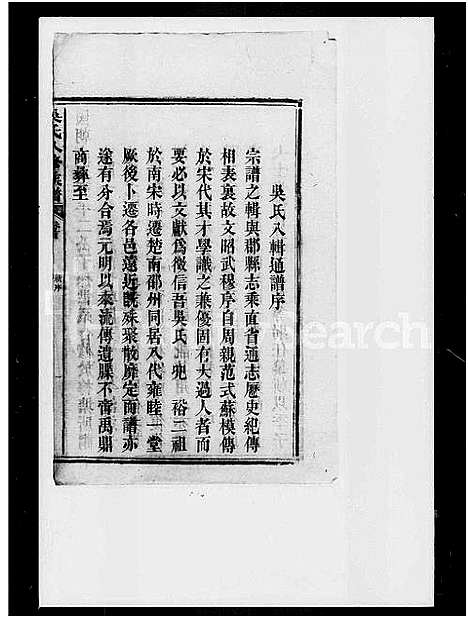 吳氏八輯通譜序
宗譜之輯與郡縣志乘直省通志歷史紀傳
相表裏故文昭武穆序自周親范式蘇模傳
於宋代其才學識之兼優固有大過人者而
要必以文獻為徵信吾吳氏兜裕三祖
於南宋時遷楚南邵州同居八代雍睦一堂
厥後卜遷各邑遠近既殊聚散靡定而譜亦
遂有分合焉元明以來流傳遺牒不啻禹鼎
商彝至